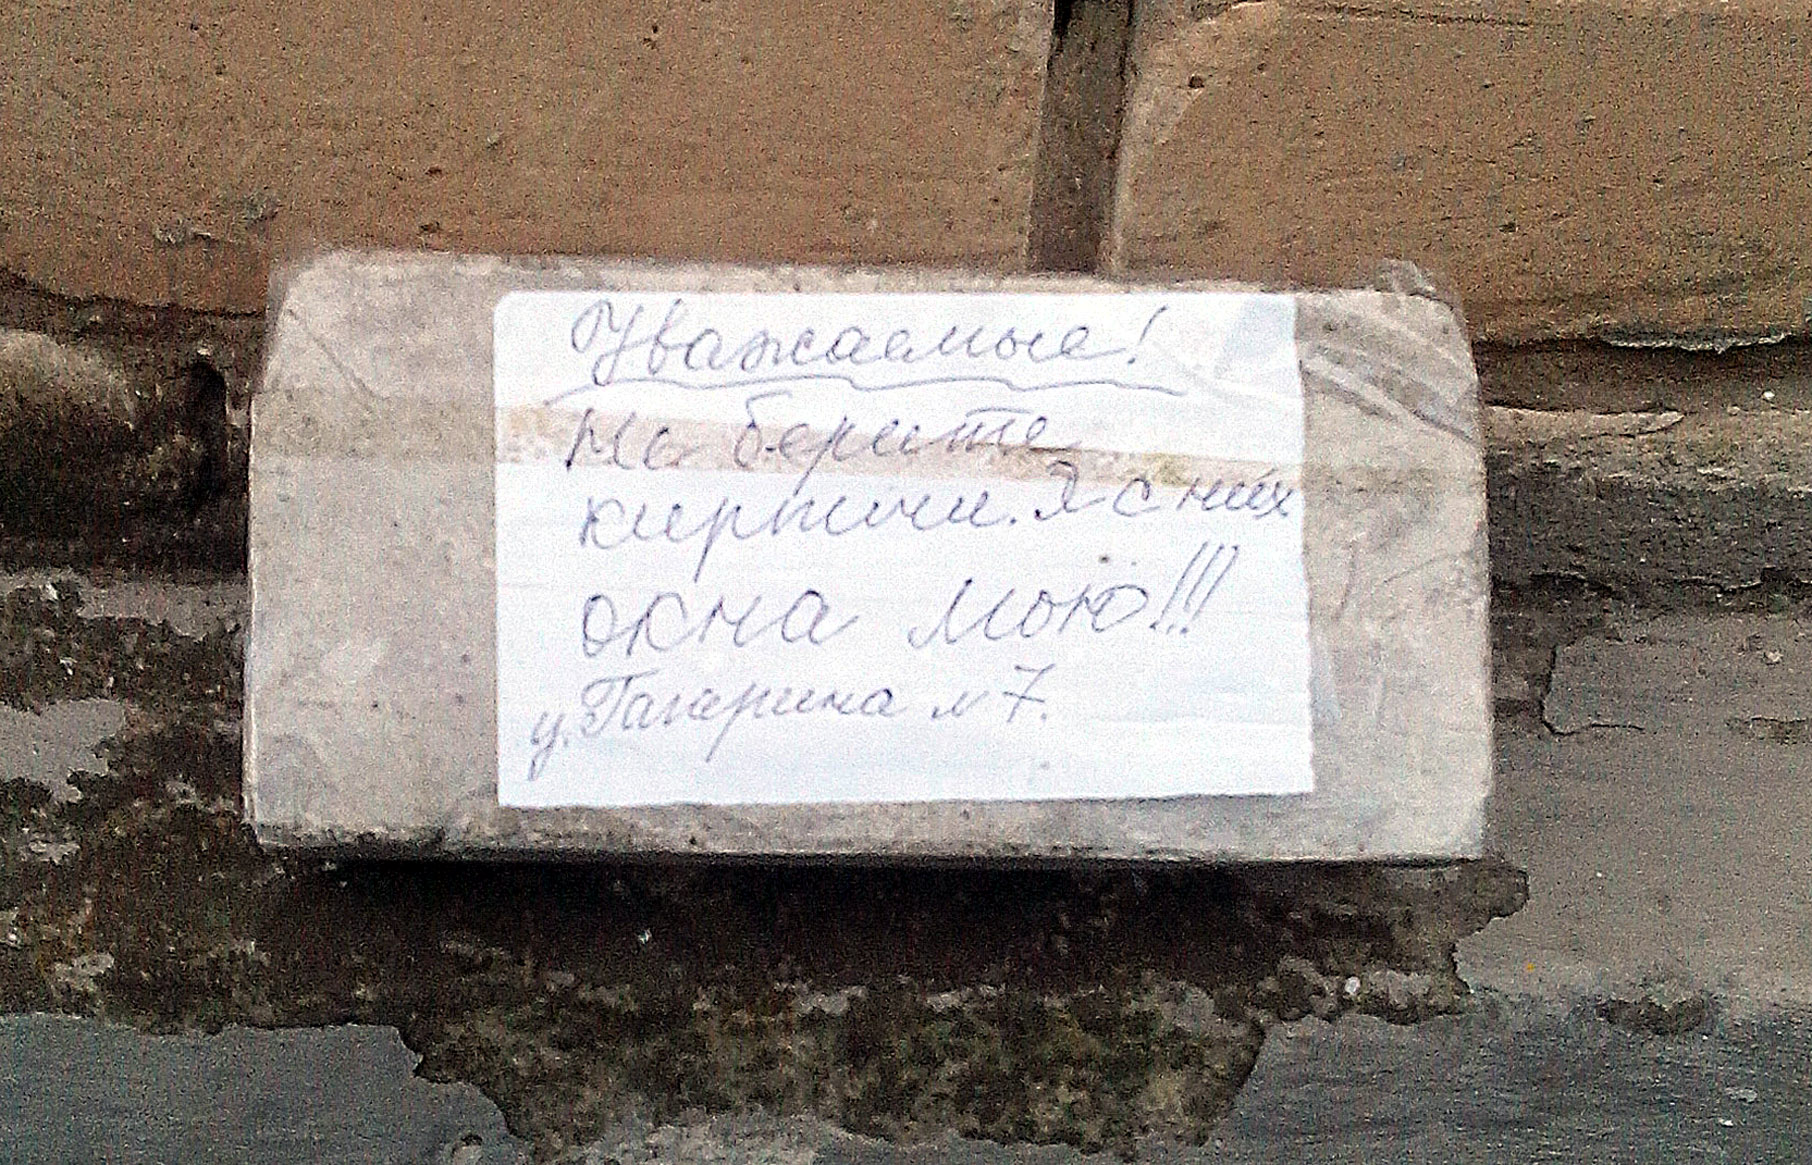 Уважаемые!
Не берите
кирпичи. Я с них
окна мою!!!
у. Гагарина м 7.